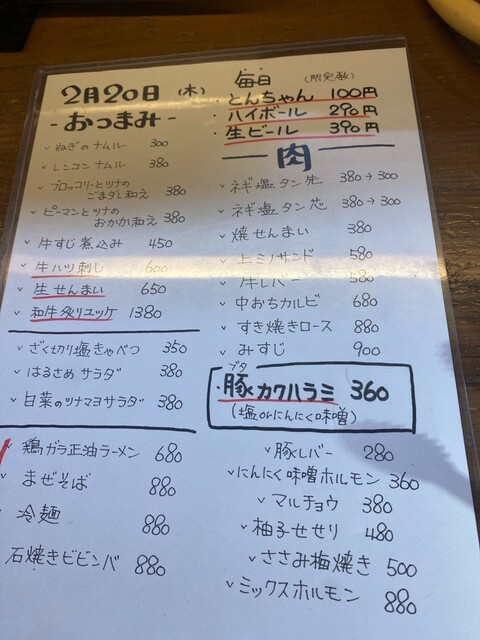 2月20日 (木)
-おつまみ-
ねぎのナムル 300
レンコンナムル 380
ブロッコリーとツナの
ごまダレ和え 380
ピーマンとツナの
おかか和え 380
牛すじ煮込み 450
牛ハツ刺し 600
生せんまい 650
和牛炙りユッケ 1380
ざく切り塩きゃべつ 350
はるさめサラダ 380
白菜のツナマヨサラダ 380
鶏ガラ正油ラーメン 680
まぜそば 880
冷麺 880
石焼きビビンバ 880
毎日 (限定数)
・とんちゃん 100円
・ハイボール 290円
・生ビール 390円
肉
ネギ塩タン先 380→300
ネギ塩タン芯 380→300
焼せんまい 380
上ミノサンド 580
牛レバー 580
中おちカルビ 680
すき焼きロース 880
みすじ 900
ブタ
・豚カクハラミ 360
(塩orにんにく味噌)
豚レバー 280
にんにく味噌ホルモン 360
マルチョウ 380
柚子せせり 480
ささみ梅焼き 500
ミックスホルモン 880